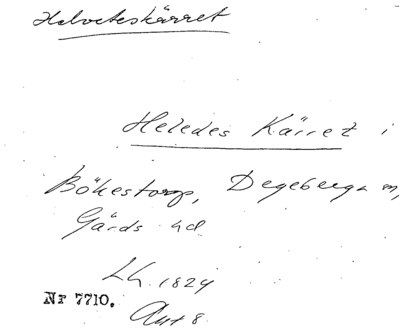 Helveteskärret
Heledes Kärret i
Bökestorp, Degeberga sn,
Gärds hd.
Lh. 1824
Nr 7710.
Akt 8.